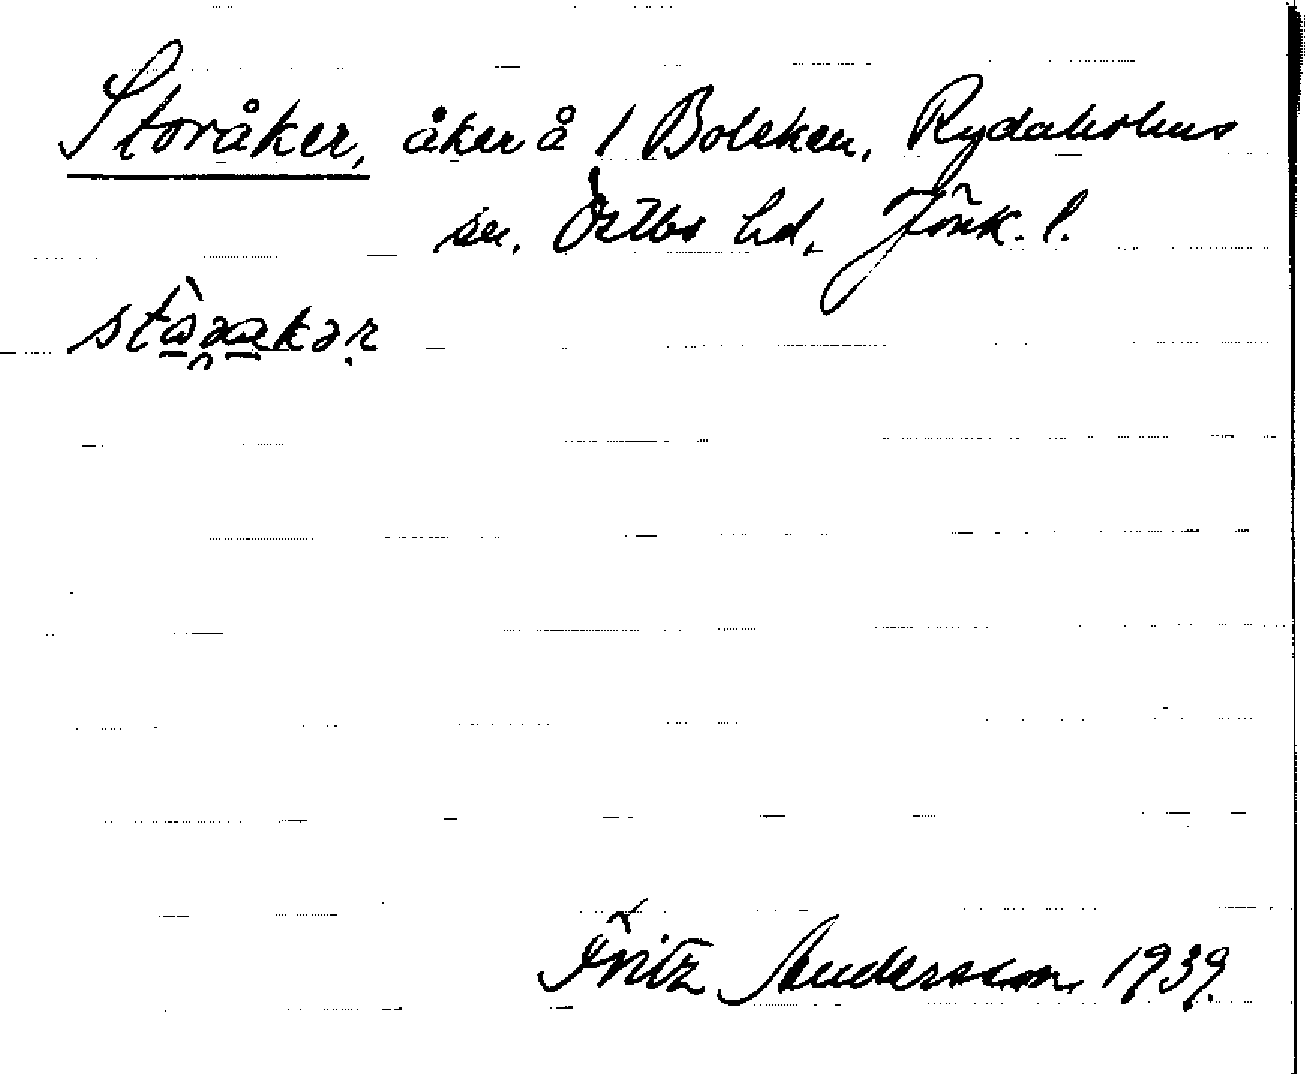 Storåker, åker å 1 Boleken, Rydaholms
sn. Östbo hd, Jönk. l.
Fritz Andersson 1939.